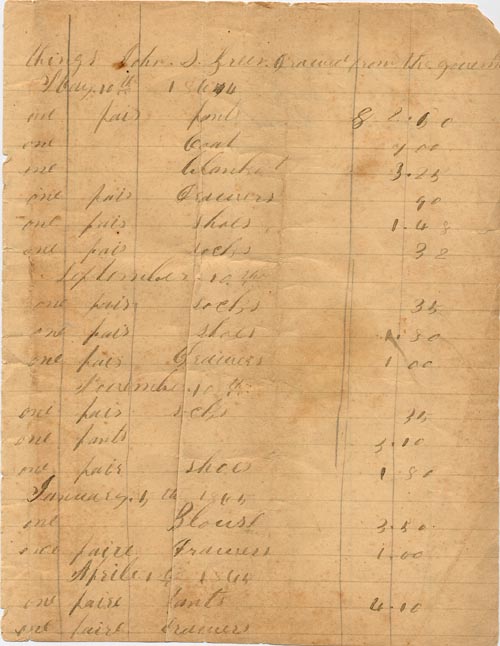 things John. S. Green drawed from the governm
May, 10th 1864
one pair pants $ 2.60
one Coat 7.00
one blanket 3.25
one pair Drawers 90
one pair shoes 1.48
one pair socks 32
September 10th
one pair socks 35
one pair shoes 1.80
one pair Drawers 1.00
November 10th
one pair socks 35
one pants 3.10
one pair shoes 1.80
January. 5th 1865
one Blouse 3.50
one paire Drawers 1.00
Aprile 1865
one paire pants 4.10
one paire drawers